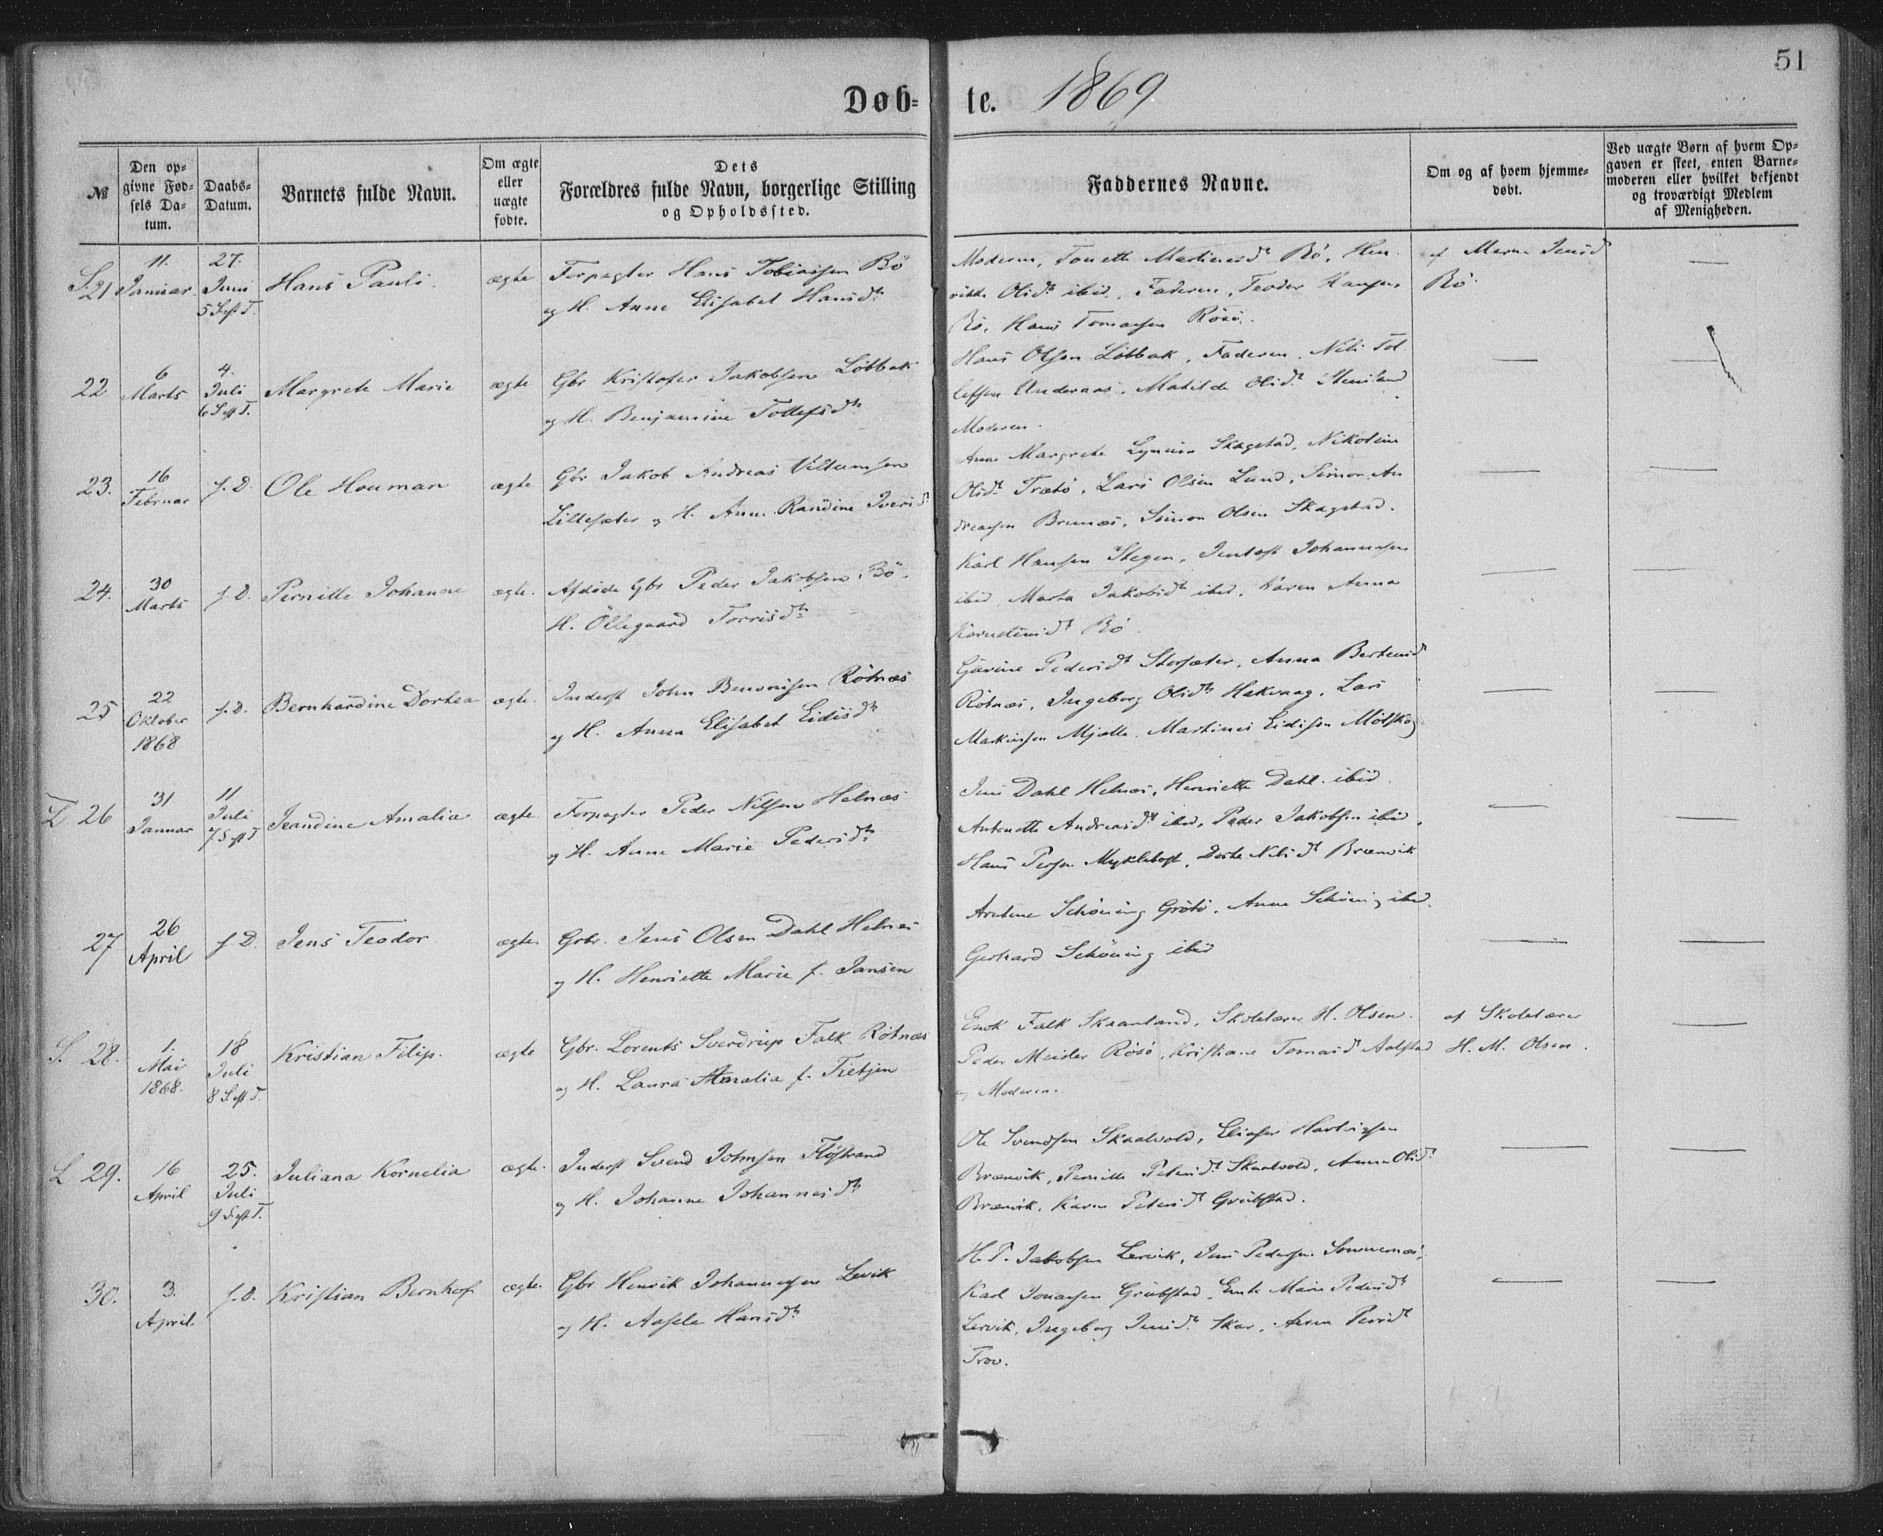 51
Døb= te. 1869
№
Den op=
givne Fød=
sels Da=
tum.
Daabs=
Datum.
Barnets fulde Navn.
Om ægte
eller
uægte
fødte.
Dets
Forældres fulde Navn, borgerlige Stilling
og Opholdssted.
Faddernes Navne.
Om og af hvem hjemme=
døbt.
Ved uægte Børn af hvem Op=
gaven er skeet, enten Barne=
moderen eller hvilket bekjendt
og troværdigt Medlem
af Menigheden.
S. 21
11.
Januar
27.
Juni
5 S eft T.
Hans Pauli.
ægte
Forpagter Hans Tobiassen Bö
og H. Anne Elisabet Hansdt
Moderen, Tonette Martinesdt Bö, Hen
rikke Olsdt ibid, Faderen, Teodor Hansen
Bö, Hans Tomassen Rösö.
af Jensd
Bö.
22
6
Marts
4.
Juli
6 S eft T.
Margrete Marie
ægte
Gbr Kristofer Jakobsen Löbbak
og H. Benjamine Tollefsdt
Hans Olsen Löbbak, Faderen, Nils Tol
lefsen Andernaas, Matilde Olsdt
Moderen.
23.
16
Februar
s. D.
Ole Houman
ægte
Gbr Jakob Andreas Villumsen
Lillesæter og H. Anne Randine Iversdt
Anne Margrete Skagstad, Nikoline
Olsdt Trætö, Lars Olsen Lund, Simon An
dreassen Brunæs, Simon Olsen Skagstad.
24.
30
Marts
s. D.
Pernille Johanne
ægte.
Afdöde Gbr Peder Jakobsen Bö.
H. Öllegaard Torrisdt
Karl Hansen Stegen, Jentoft Johannesen
ibid, Marta Jakobsdt ibid, Karen Anna
Korneliusdt Bö.
25
22
Oktober
1868
s. D.
Bernhardine Dortea
ægte.
Inderst John Benonisen Rötnæs
og H. Anna Elisabet Eidisdt
Gjørine Pedersdt Storsæter, Anna Bertheusd
Rötnæs, Ingeborg Olsdt Hakvaag, Lars
Markussen Mjelle, Martines Eidissen Mölskog
L 26
31
Januar
11
Juli
7 S eft T
Jeandine Amalia
ægte.
Forpagter Peder Nilsen Helnæs
og H. Anne Marie Pedersdt
Jens Dahl Helnæs, Henriette Dahl ibid.
Antonette Andreasdt ibid, Peder Jakobsen ibid,
Hans Persen Myklebost, Dorte Nilsdt Brænvik
27
26
April
s. D.
Jens Teodor.
ægte.
Gbr. Jens Olsen Dahl Helnæs
og H. Henriette Marie f. Jansen
Schöning Grötö, Anna Schöning ibid.
Gerhard Schöning ibid
S. 28.
1.
Mai
1868.
18
Juli
8 S eft T.
Kristian Filip.
ægte
Gbr. Lorents Sverdrup Falk Rötnæs
og H. Laura Amalia f. Tiebjen
Enok Falk Skaanland, Skolelærer H. Olsen.
Peder Meisler Rösö, Kristiane Tomasd Aalstad
og Moderen.
af Skolelærer
H. M. Olsen.
L 29.
16
April
25.
Juli
9 S eft T.
Juliana Kornelia
ægte.
Inderst Svend Johnsen Flöstrand
og H. Johanne Johannesdt
Ole Svendsen Skaalvold, Eliaser Hartvigsen
Brænvik, Pernille Petersdt Skaalvold, Anna Olsdt
Brænvik, Karen Petersdt Gröbstad.
30.
3.
April.
s. D.
Kristian Bernhof.
ægte.
Gbr Henrik Johannessen Levik
og H. Asele Hansdt
H. P. Jakobsen Lervik, Jens Pedersen Sommernæs,
Karl Jonassen Gröbstad, Marie Pedersdt
Lervik, Ingeborg Jensdt Skar, Anna Persdt
Trov.